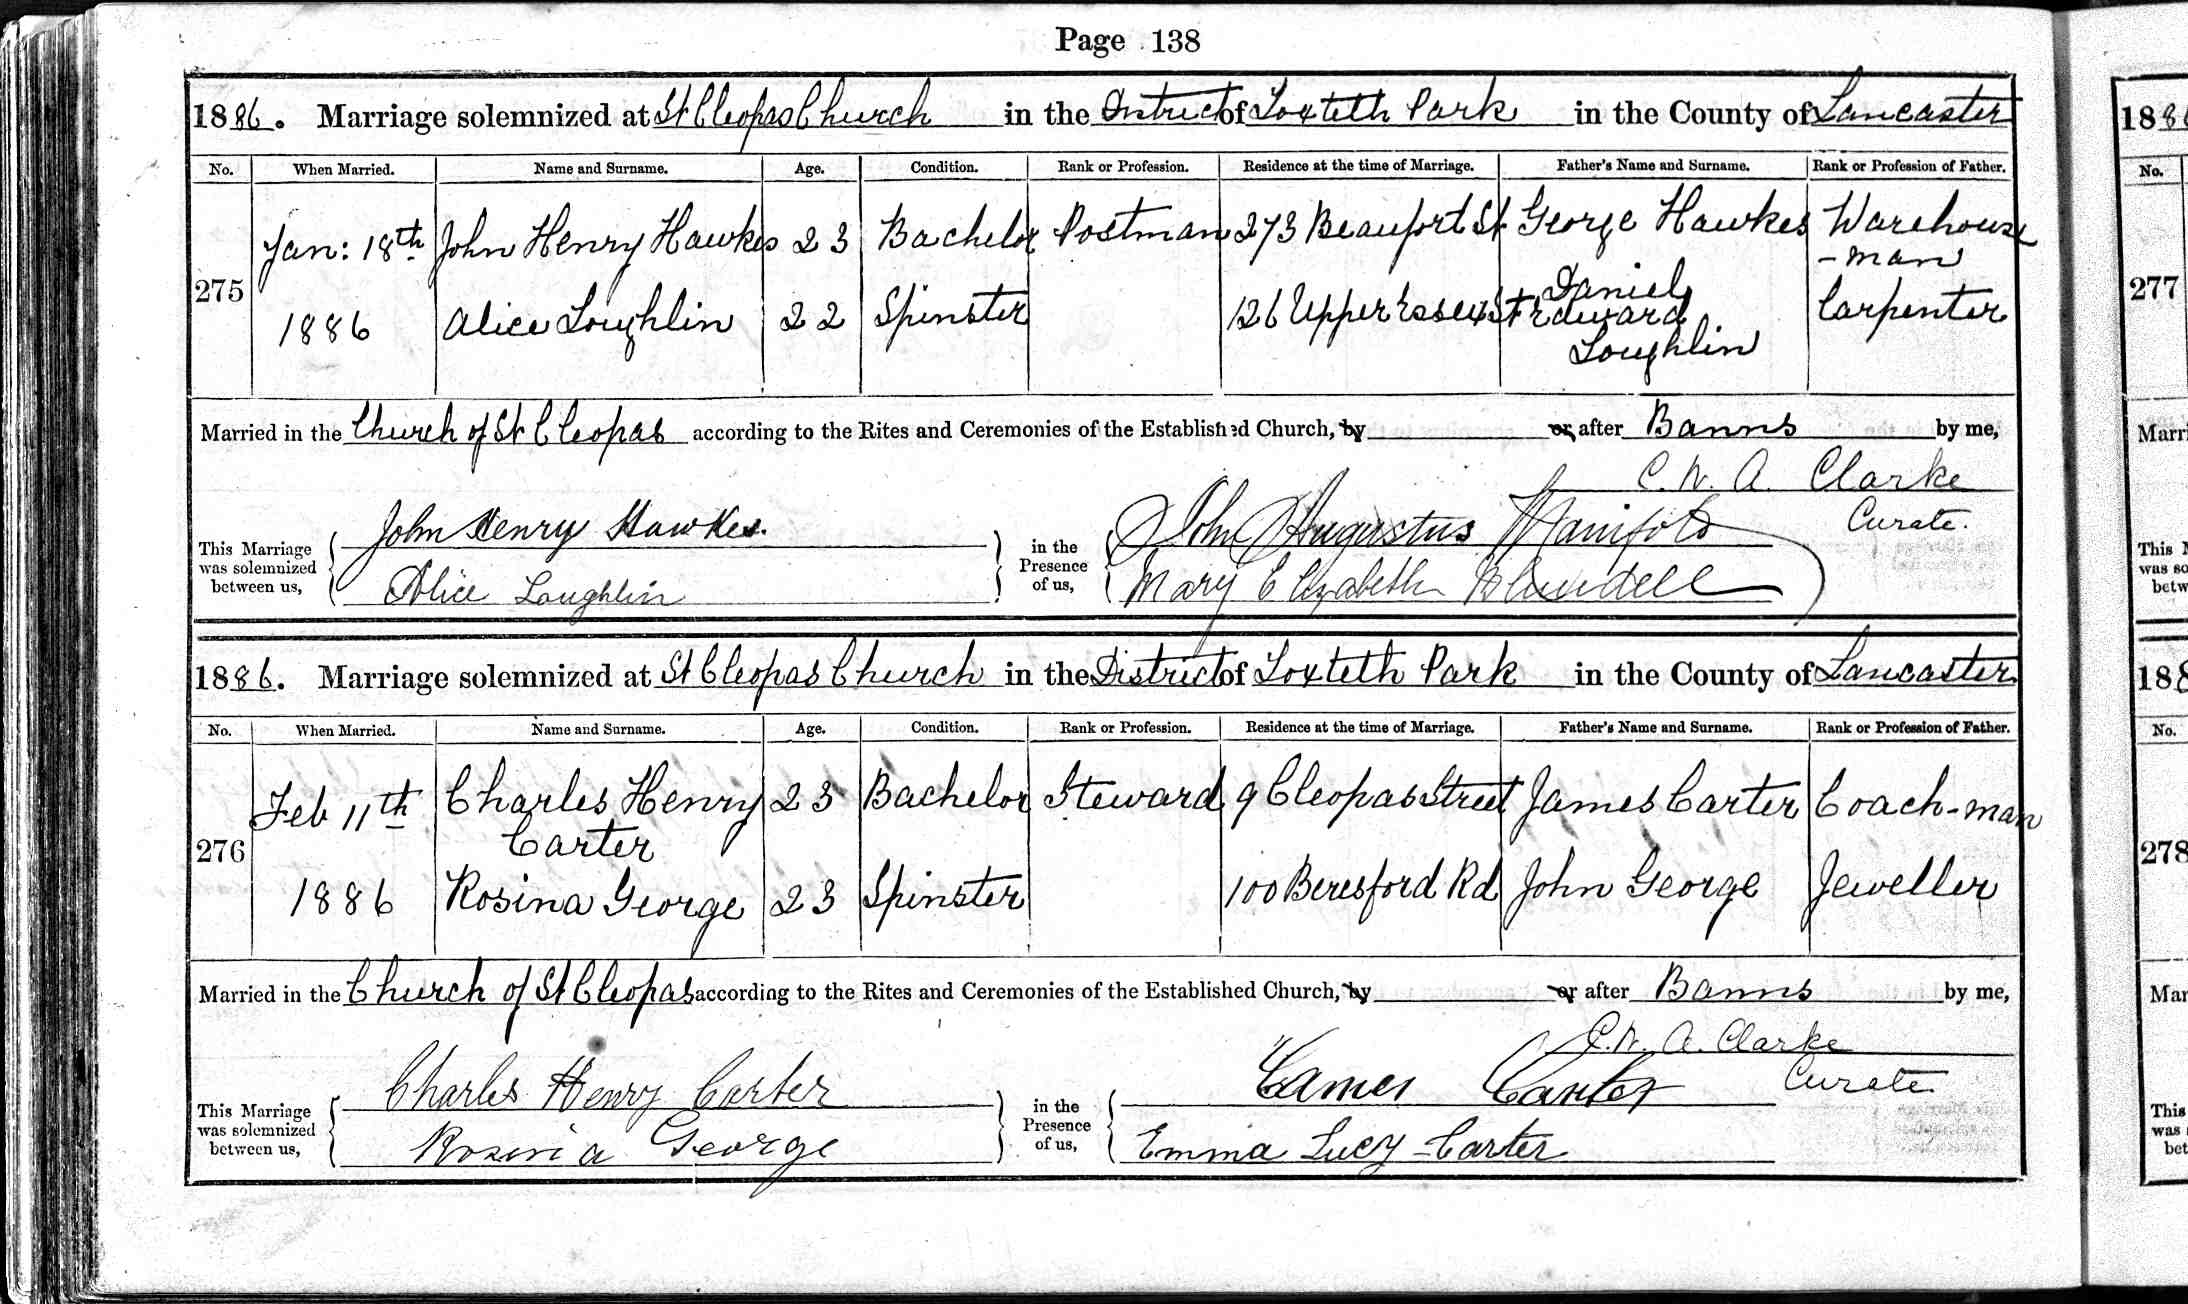 Page 138
1886. Marriage solemnized at St Cleopas Church in the District of Toxteth Park in the County of Lancaster
No. When Married. Name and Surname. Age. Condition. Rank or Profession. Residence at the time of Marriage. Father's Name and Surname. Rank or Profession of Father.
275 Jan: 18th John Henry Hawkes 23 Bachelor Postman 273 Beaufort St George Hawkes Warehouse
-man
1886 Alice Loughlin 22 Spinster 126 Upper Essex St Daniel Edward Loughlin Carpenter
Married in the Church of St Cleopas according to the Rites and Ceremonies of the Established Church, by or after Banns by me,
C. W. A. Clarke
Curate.
This Marriage was solemnized between us, John Henry Hawkes. in the Presence of us, John Augustus Manifold
Alice Loughlin Mary Elizabeth Blundell
1886. Marriage solemnized at St Cleopas Church in the District of Toxteth Park in the County of Lancaster
No. When Married. Name and Surname. Age. Condition. Rank or Profession. Residence at the time of Marriage. Father's Name and Surname. Rank or Profession of Father.
276 Feb 11th Charles Henry Carter 23 Bachelor Steward 9 Cleopas Street James Carter Coach-man
1886 Rosina George 23 Spinster 100 Beresford Rd John George Jeweller
Married in the Church of St Cleopas according to the Rites and Ceremonies of the Established Church, by or after Banns by me,
C. W. A. Clarke
Curate
This Marriage was solemnized between us, Charles Henry Carter in the Presence of us, James Carter
Rosina George Emma Lucy Carter
188
No.
277
Marri
This M
was so
betw
188
No.
278
Mar
This
was
bet